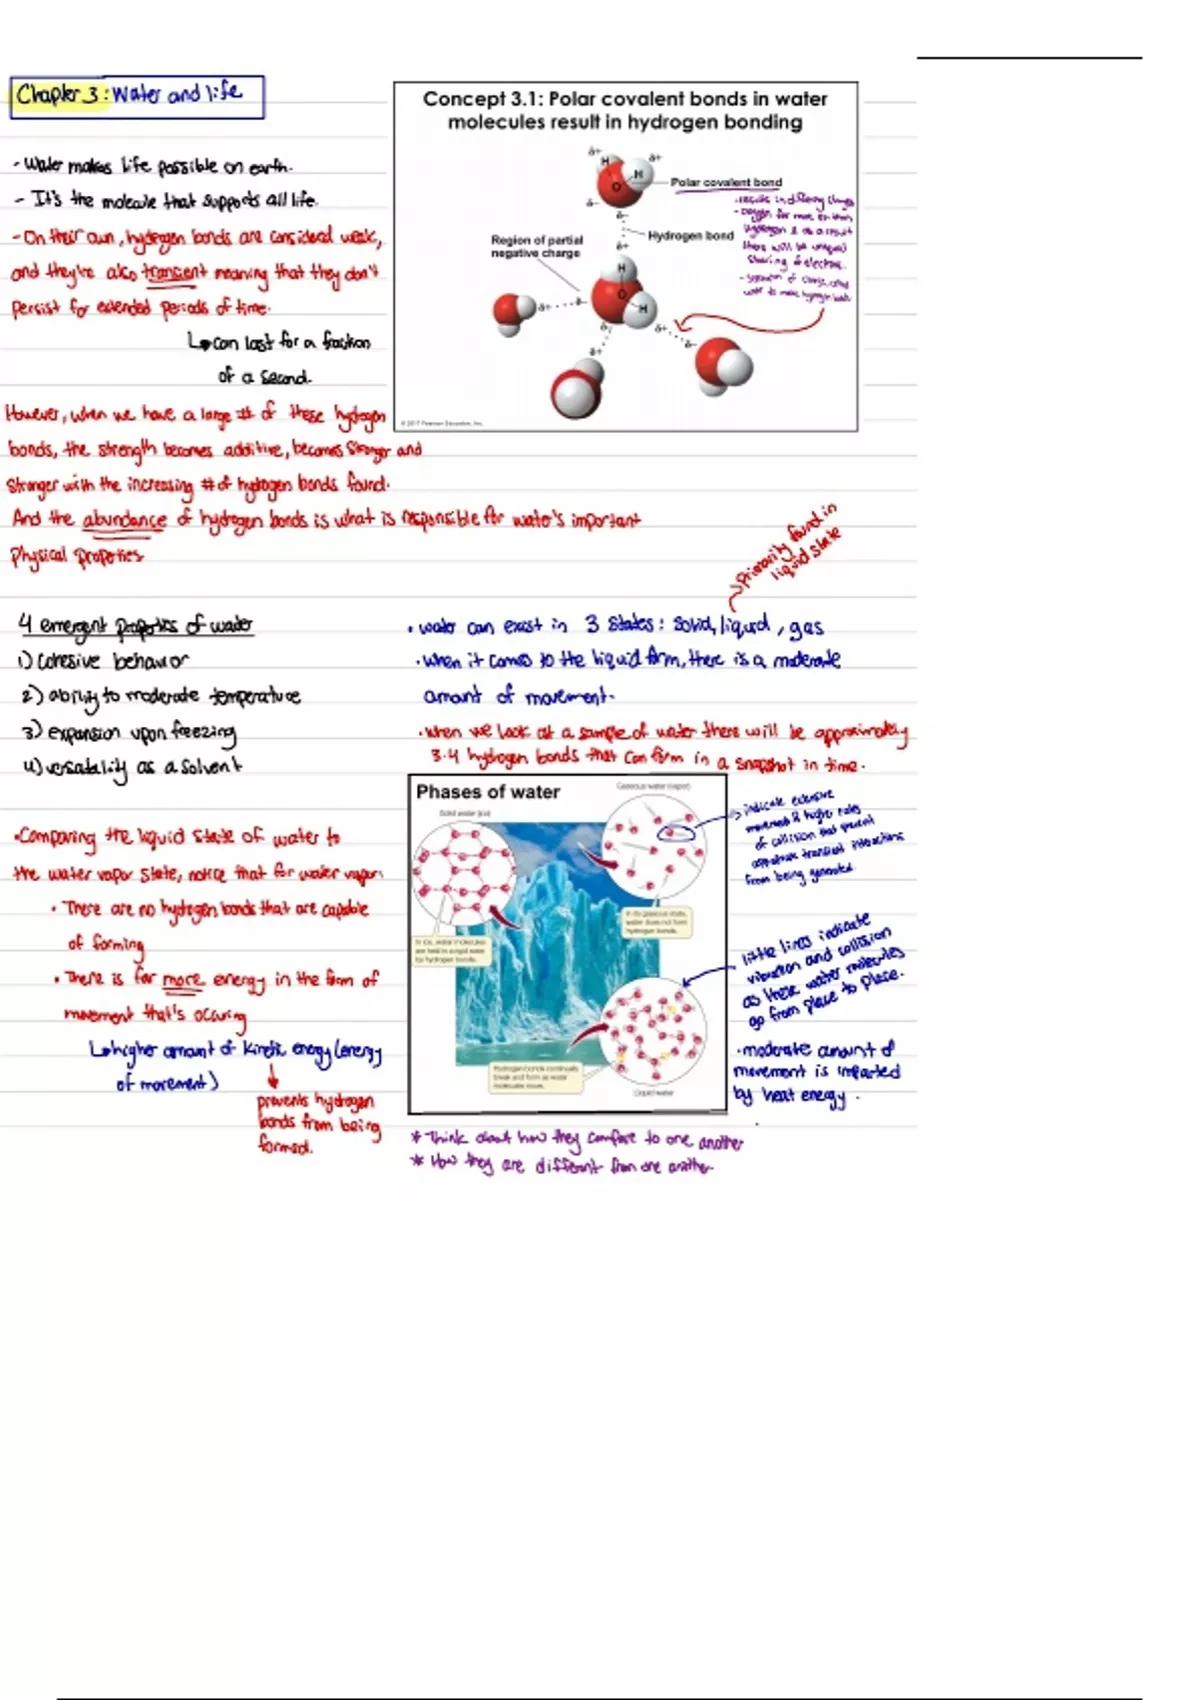 Chapter 3: Water and life
- Water makes life possible on earth.
- It's the molecule that supports all life.
- On their own, hydrogen bonds are considered weak,
and they're also transient meaning that they don't
persist for extended periods of time.
↳ can last for a fraction
of a second.
However, when we have a large # of these hydrogen
bonds, the strength becomes additive, becomes stronger and
stronger with the increasing # of hydrogen bonds found.
And the abundance of hydrogen bonds is what is responsible for water's important
physical properties
Concept 3.1: Polar covalent bonds in water
molecules result in hydrogen bonding
δ+
H
δ+
H
O
Polar covalent bond
δ-
δ-
Hydrogen bond
δ+
Region of partial
negative charge
H
O
H
δ+
δ-
δ+
δ-
δ-
δ+
© 2017 Pearson Education, Inc.
- results in differing charges
- oxygen far more en than
hydrogen & as a result
there will be unequal
sharing of electrons.
- separation of charge
water to make hydrogen bonds
4 emergent properties of water
1) cohesive behavior
2) ability to moderate temperature
3) expansion upon freezing
4) versatality as a solvent
primarily found in
liquid state
• water can exist in 3 states: solid, liquid, gas
• when it comes to the liquid form, there is a moderate
amount of movement.
• when we look at a sample of water there will be approximately
3.4 hydrogen bonds that can form in a snapshot in time.
• Comparing the liquid state of water to
the water vapor state, notice that for water vapor:
• There are no hydrogen bonds that are capable
of forming
• There is far more energy in the form of
movement that's occuring
↳ higher amount of kinetic energy (energy
of movement)
prevents hydrogen
bonds from being
formed.
Phases of water
Gaseous water (vapor)
Solid water (ice)
In its gaseous state,
water does not form
hydrogen bonds.
In ice, water molecules
are held in a rigid
by hydrogen bonds.
Hydrogen bonds continually
break and form as water
molecules move.
Liquid water
indicate extensive
movement & higher rates
of collision that prevent
transient interactions
from being generated.
little lines indicate
vibration and collision
as these water molecules
go from place to place.
• moderate amount of
movement is imparted
by heat energy.
* Think about how they compare to one another
* How they are different from one another.